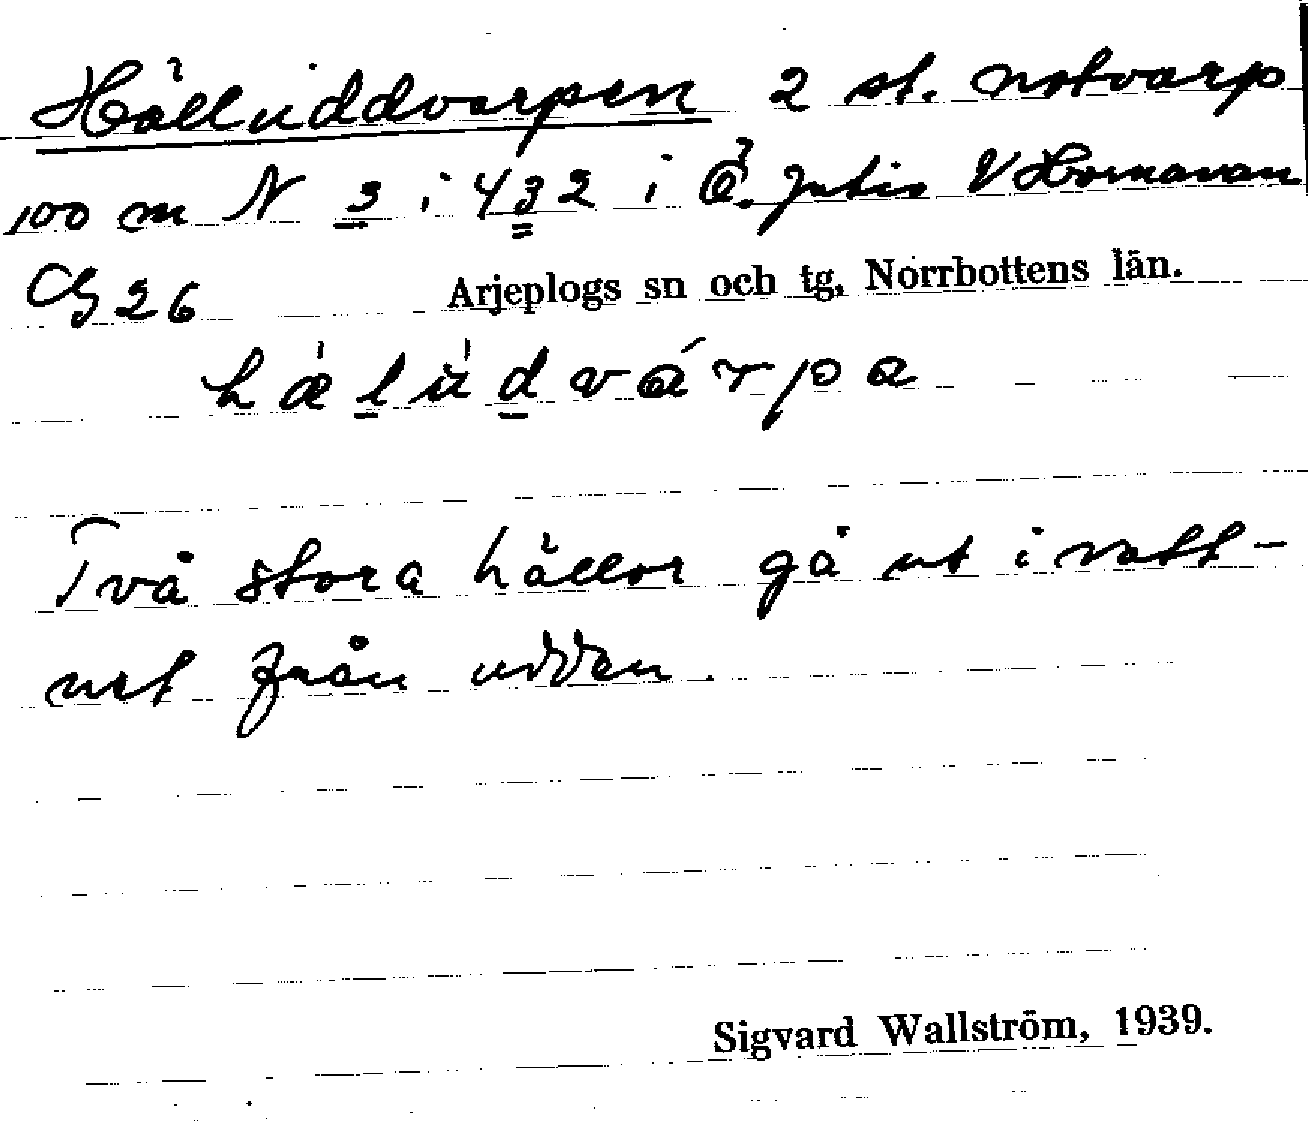 Hälluddvarpen 2 st. notvarp
100 m N 3 i 432 i Ö. Jutis V Hornavan
Cg 26 Arjeplogs sn och tg, Norrbottens län.
hæ̀lùdvárpa
Två stora hällor gå ut i vatt-
net från udden.
Sigvard Wallström, 1939.